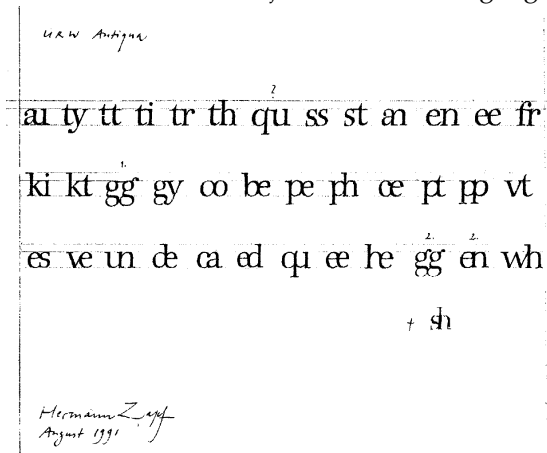 URW Antigua
?
au ty tt ti tr th qu ss st an en ee fr
1.
ki kt gg gy oo be pe ph oe pt pp vt
2. 2.
es ve un de ca ed qu ee he gg en wh
+ sh
Hermann Zapf
August 1991